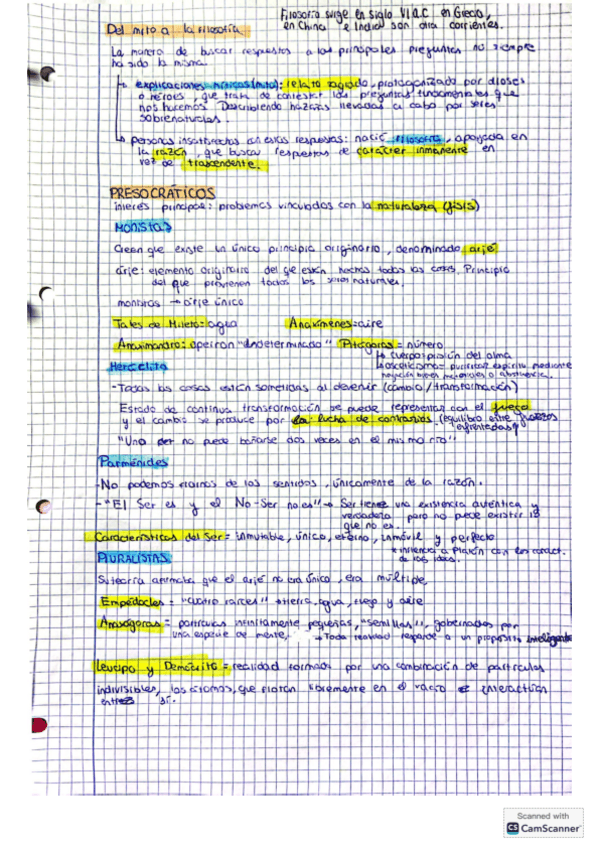 Filosofía surge en siglo VI a.C en Grecia,
en China e India son otra corrientes.
Del mito a la filosofía
La manera de buscar respuestas a las principales preguntas no siempre
ha sido la misma.
explicaciones míticas (mito): relato sagrado, protagonizado por dioses
o héroes, que trata de contestar las preguntas fundamentales que
nos hacemos. Describiendo hazañas llevadas a cabo por seres
sobrenaturales.
personas insatisfechas con estas respuestas: nació filosofía, apoyada en
la razón, que busca respuestas de carácter inmanente en
vez de trascendente.
PRESOCRÁTICOS
interés principal: problemas vinculados con la naturaleza (fisis)
MONISTAS
Creen que existe un único principio originario, denominado arjé
arjé: elemento originario del que están hechas todas las cosas. Principio
del que provienen todos los seres naturales.
monistas → arjé único
Tales de Mileto: agua Anaxímenes: aire
Anaximandro: apeiron "indeterminado" Pitágoras = número
↳ cuerpo: prisión del alma
↳ ascetismo = purificar espíritu mediante
negación bienes materiales o abstinencia.
Heráclito
- Todas las cosas están sometidas al devenir (cambio / transformación)
Estado de continua transformación se puede representar con el fuego
y el cambio se produce por la lucha de contrarios (equilibrio entre fuerzas
enfrentadas)
"Uno no puede bañarse dos veces en el mismo río"
Parménides
- No podemos fiarnos de los sentidos, únicamente de la razón.
- "El Ser es y el No-Ser no es" → Ser tiene una existencia auténtica y
verdadera pero no puede existir lo
que no es.
Características del Ser = inmutable, único, eterno, inmóvil y perfecto
* influencia a Platón con las caract.
de las ideas.
PLURALISTAS
Su teoría afirmaba que el arjé no era único, era múltiple,
Empédocles = "cuatro raíces" → tierra, agua, fuego y aire
Anaxágoras = partículas infinitamente pequeñas, "semillas", gobernadas por
una especie de mente. → Toda realidad responde a un propósito inteligente
Leucipo y Demócrito = realidad formada por una combinación de partículas
indivisibles, los átomos, que flotan libremente en el vacío e interactúan
entre sí.
Scanned with
CS CamScanner